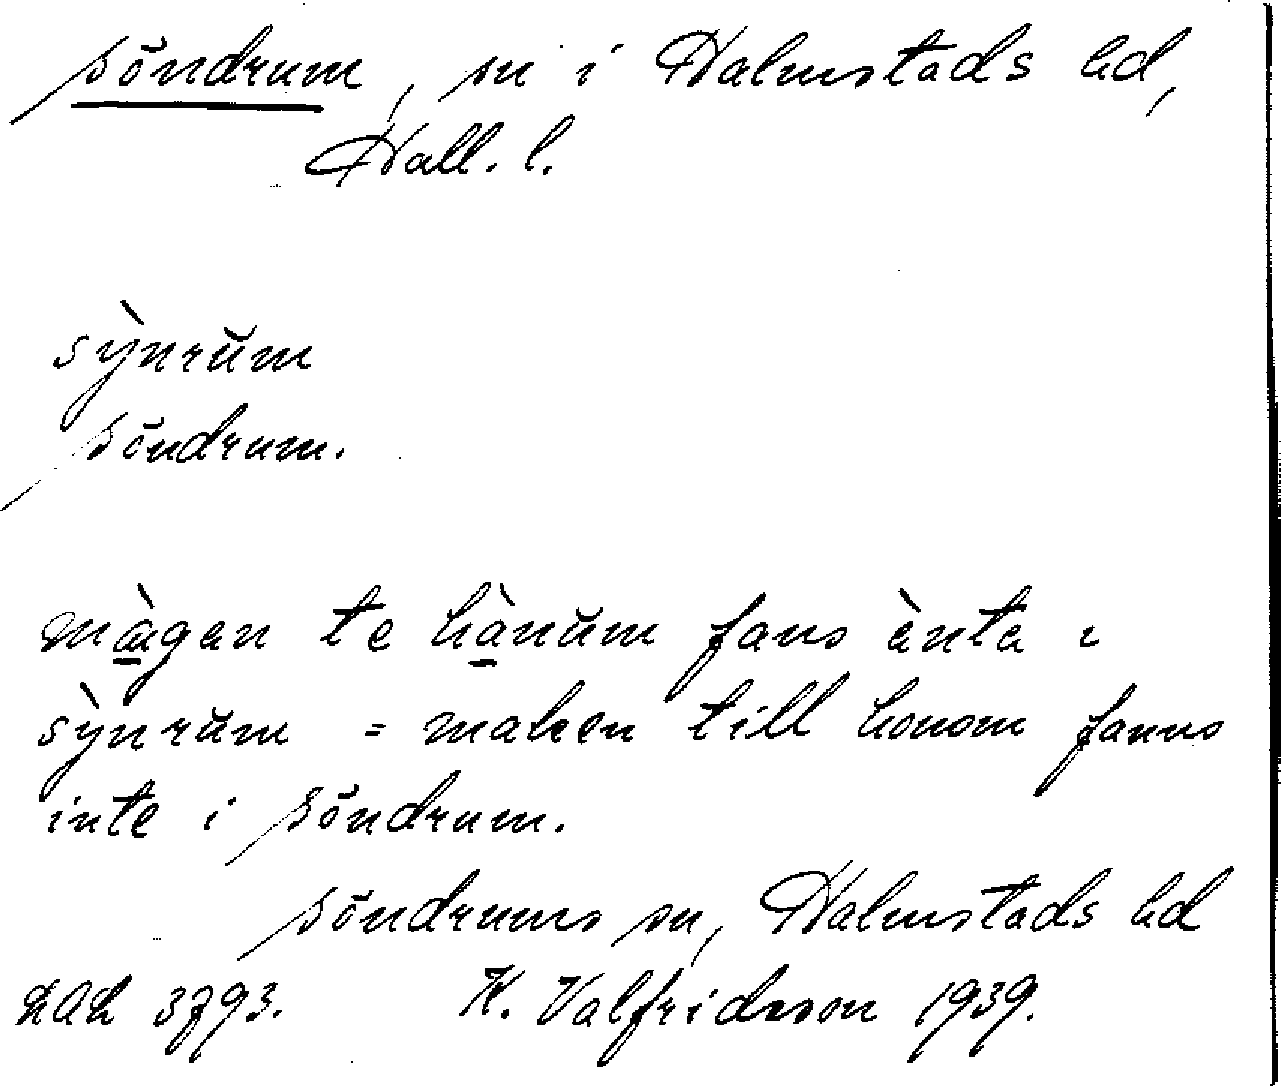 Söndrum, sn i Halmstads hd,
Hall. l.
sỳnrŭm
Söndrum.
màgen te hànŭm fans ènte i
sỳnrŭm = maken till honom fanns
inte i Söndrum.
Söndrums sn, Halmstads hd
3793. K. Valfridsson 1939.